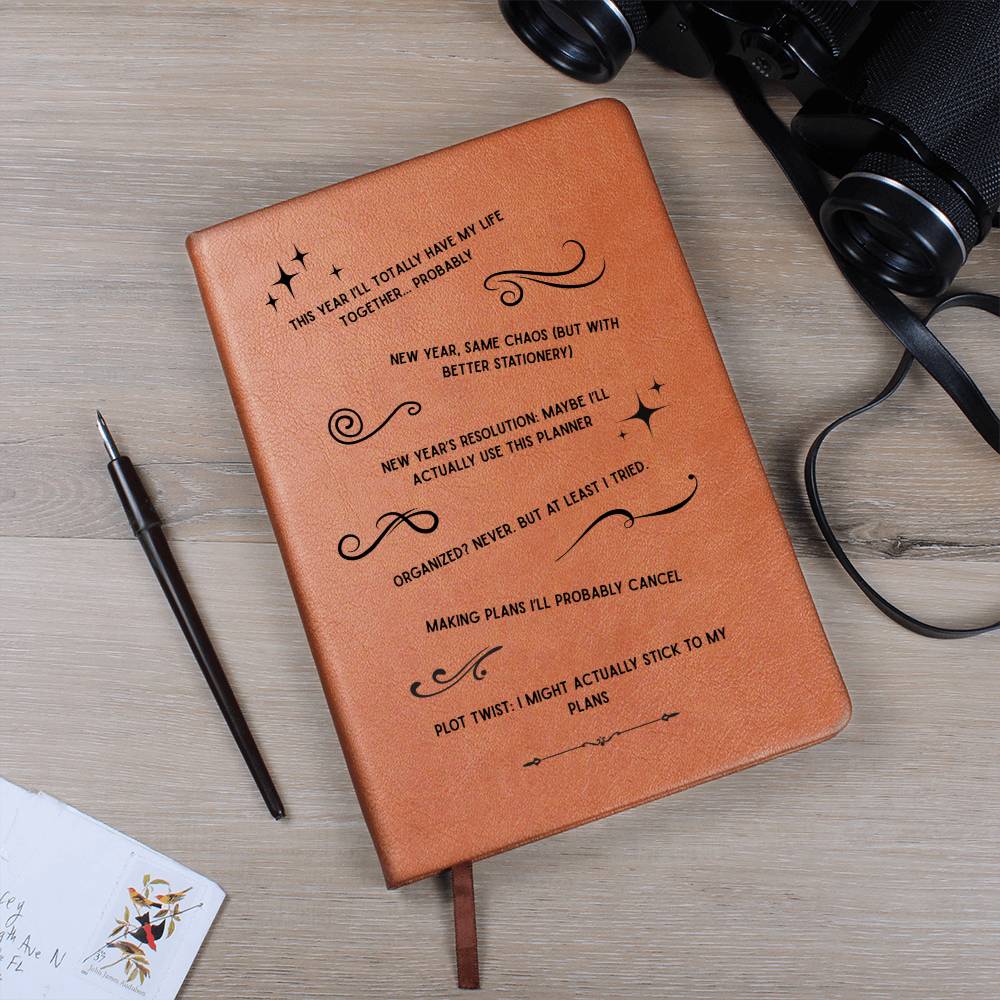 THIS YEAR I'LL TOTALLY HAVE MY LIFE
TOGETHER... PROBABLY
NEW YEAR, SAME CHAOS (BUT WITH
BETTER STATIONERY)
NEW YEAR'S RESOLUTION: MAYBE I'LL
ACTUALLY USE THIS PLANNER
ORGANIZED? NEVER. BUT AT LEAST I TRIED.
MAKING PLANS I'LL PROBABLY CANCEL
PLOT TWIST: I MIGHT ACTUALLY STICK TO MY
PLANS
Ave N
FL
37
John James Audubon